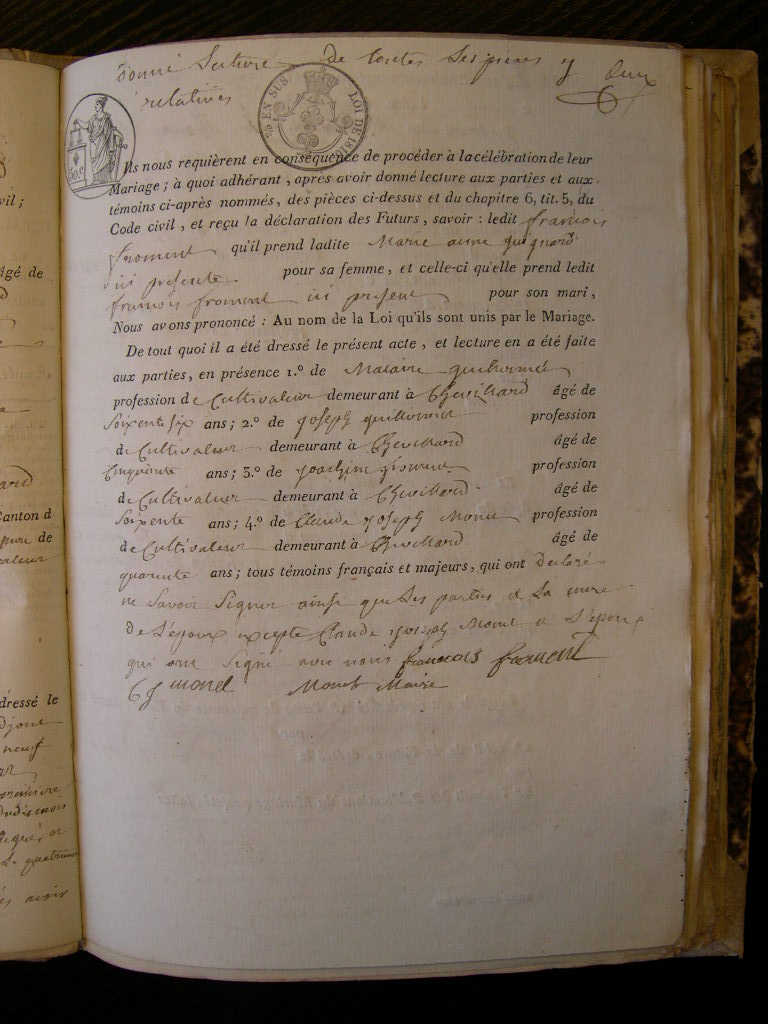 donné lecture de toutes les pièces y
relatives
% EN SUS LOI DE 1816
50c
Ils nous requièrent en conséquence de procéder à la célébration de leur
Mariage ; à quoi adhérant , après avoir donné lecture aux parties et aux
témoins ci-après nommés, des pièces ci-dessus et du chapitre 6, tit. 5, du
Code civil , et reçu la déclaration des Futurs , savoir : ledit francois
froment qu'il prend ladite Marie anne guignard
ici présente pour sa femme, et celle-ci qu'elle prend ledit
francois froment ici présent pour son mari,
Nous avons prononcé : Au nom de la Loi qu'ils sont unis par le Mariage.
De tout quoi il a été dressé le présent acte , et lecture en a été faite
aux parties, en présence 1.º de Macaire
profession de Cultivateur demeurant à Chevillard âgé de
Soixente six ans; 2.º de joseph profession
de Cultivateur demeurant à Chevillard âgé de
Cinquante ans; 3.º de joachim froment profession
de Cultivateur demeurant à Chevillard âgé de
Soixente ans; 4.º de Claude joseph Monet profession
de Cultivateur demeurant à Chevillard âgé de
quarante ans; tous témoins français et majeurs, qui ont Declaré
ne Savoir Signer ainsi que les parties et la mere
de l'époux excepté Claude joseph Monet et l'époux
qui ont Signé avec nous francois froment
C J monet Monet Maire
vil ;
âgé de
Canton d
de
dressé le
adjoint
neuf
avoir